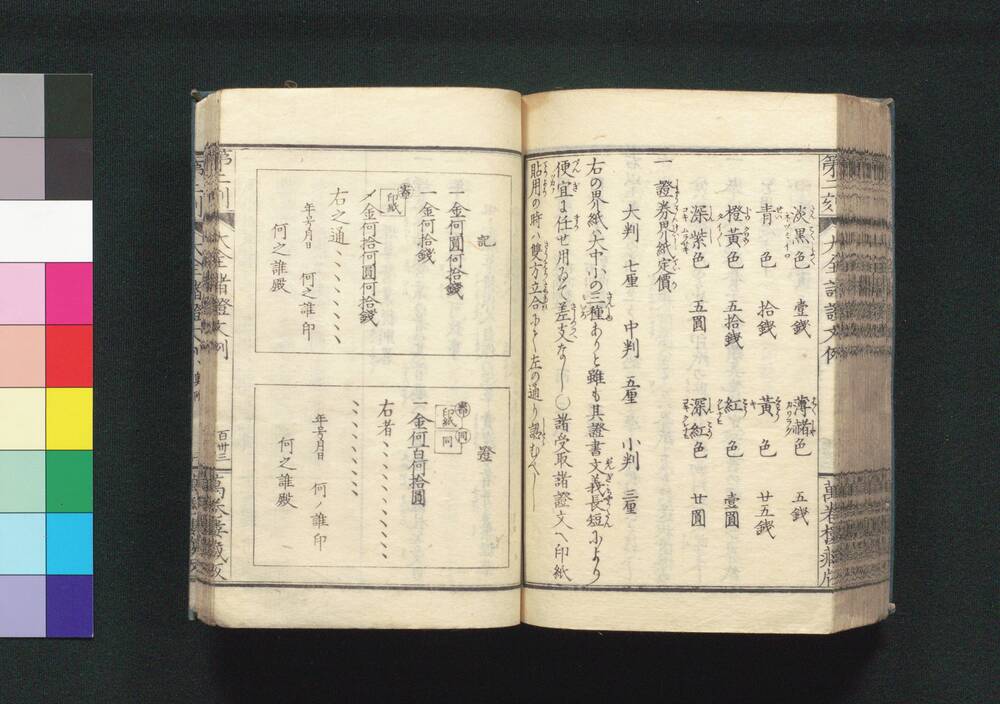 淡黒色 壹錢 薄赭色 五錢
青色 拾錢 黃色 廿五錢
橙黃色 五拾錢 紅色 壹圓
深紫色 五圓 深紅色 廿圓
一 證券界紙定價
大判 七厘 中判 五厘 小判 三厘
右の界紙大中小の三種ありと雖も其證書文義長短により
便宜に任せ用ゐて差支なし〇諸受取諸證文へ印紙
貼用の時ハ雙方立合にて左の通り認むべし
記
一金何圓何拾錢
一金何拾錢
印紙
〆金何拾何圓何拾錢
右之通、、、、、、
年号月日 何之誰印
何之誰殿
證
印紙 同
一金何百何拾圓
右者、、、、、、、、、
、、、、、、、
年号月日 何ノ誰印
何之誰殿
大全諸證文例
百卅三
萬卷樓藏版